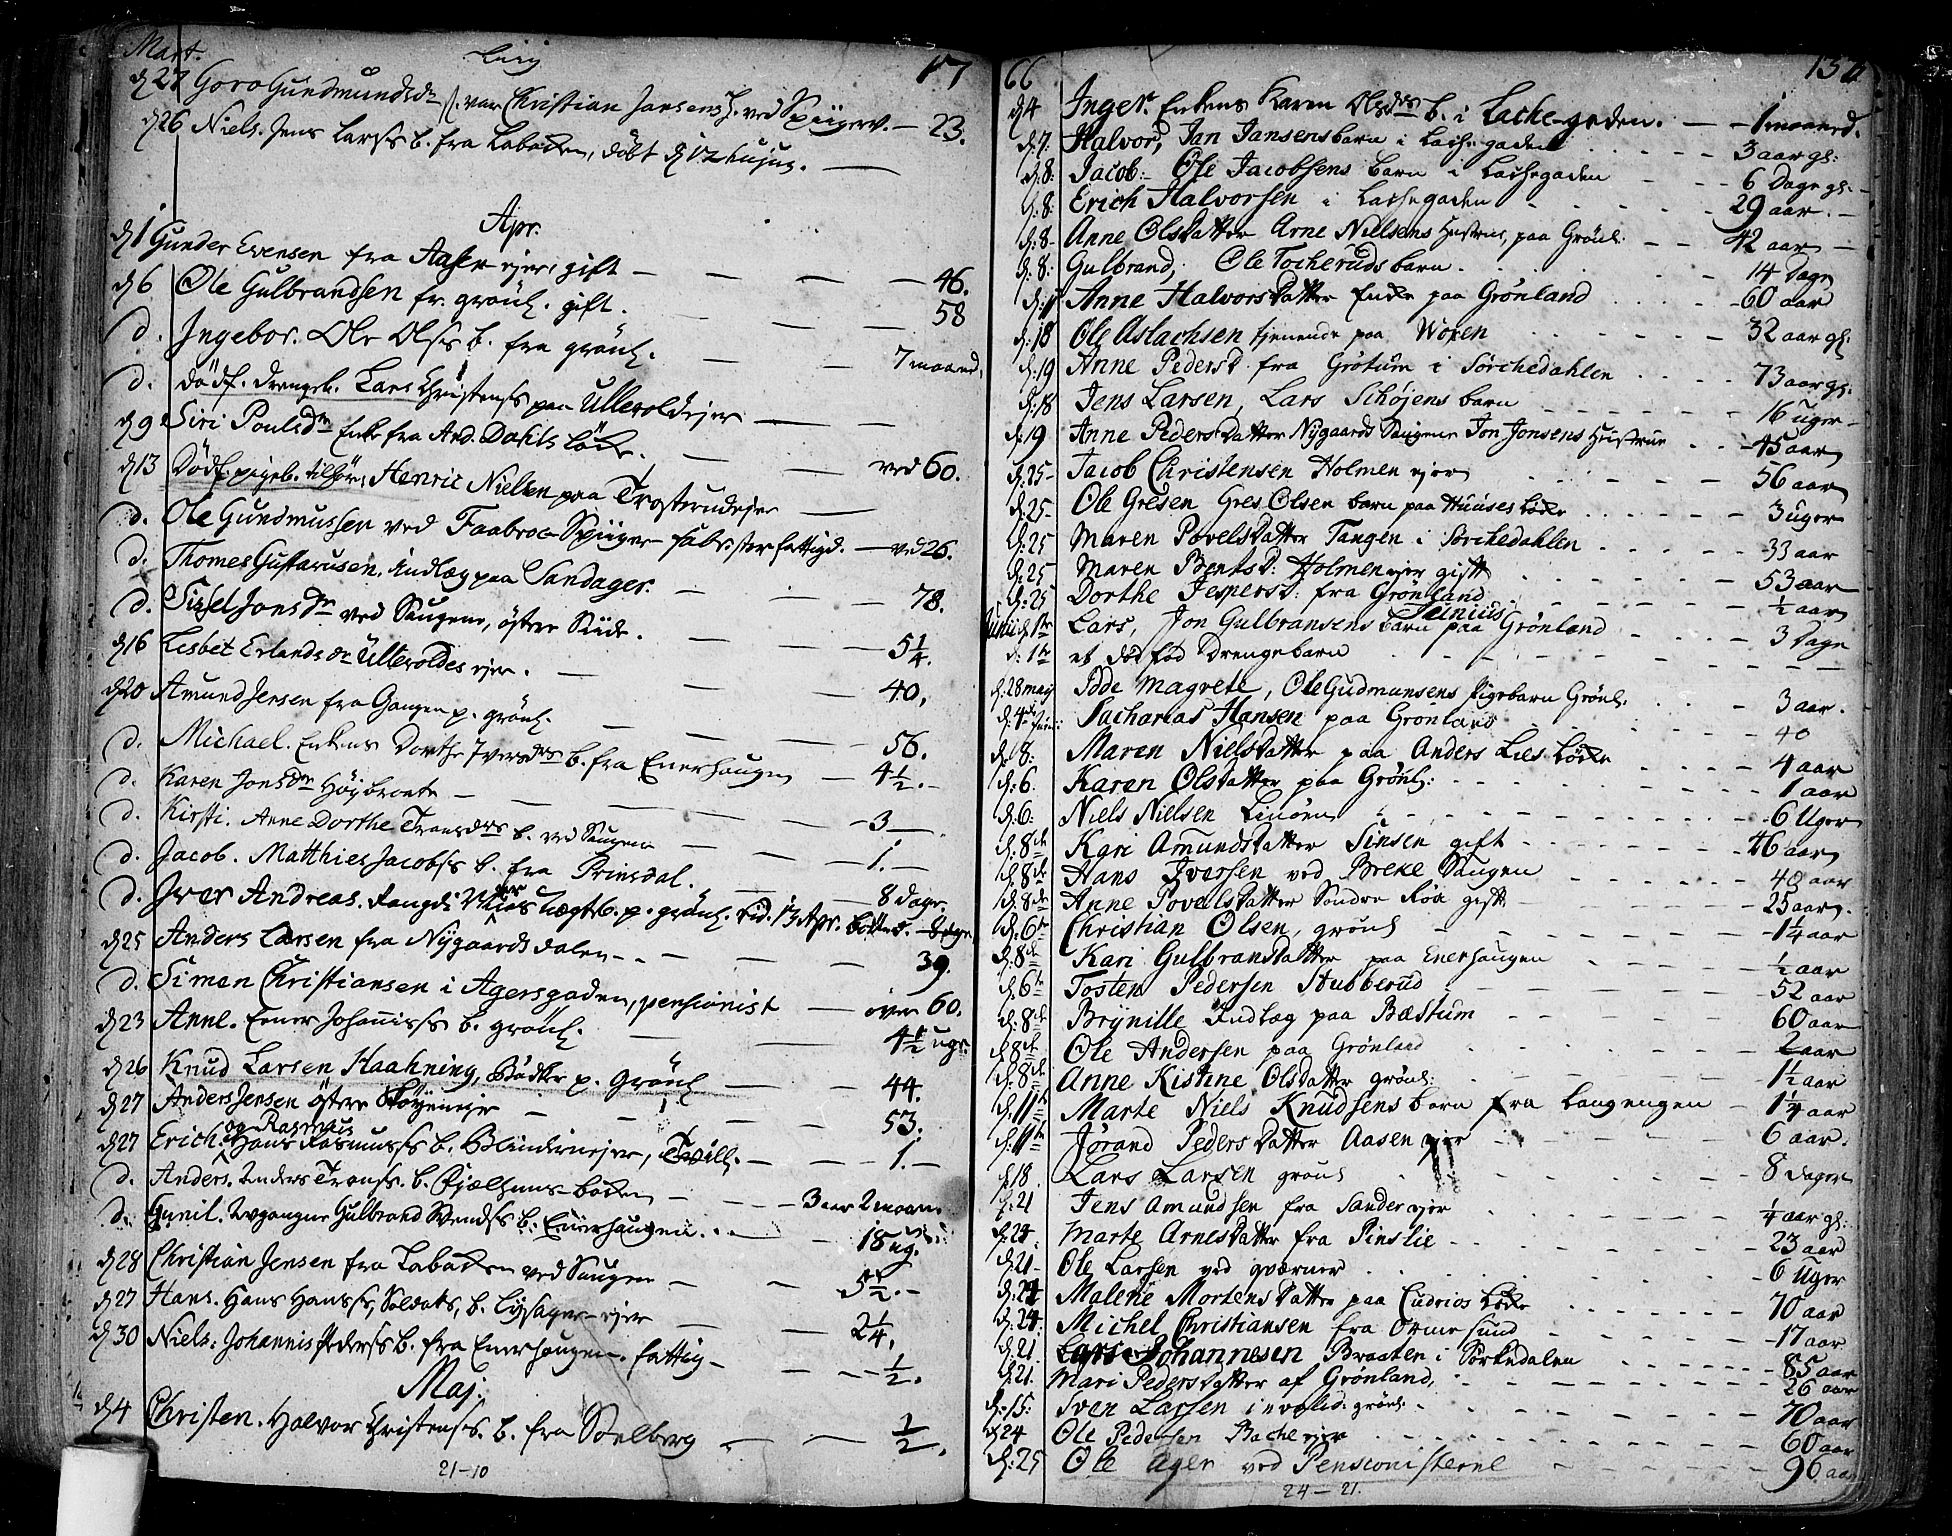 Mart. Liig 17
d 27 Goro Gundmundsdr var Christian Jansens h. ved Spiigerv. — 23.
d 26 Niels. Jens Larss. b. fra Labacken, döbt d 12 hujus. —
Apr.
d 1 Gunder Evensen fra Aasen ejer, gift — 46.
d 6 Ole Gulbrandsen fr. grönl. gift. — 58
d. Ingebor. Ole Olss. b. fra grönl. — 7 maaned.
d. dödf. drengeb. Lars Christenss paa Ullevoldsejer —
d 9 Siri Poulsdr Enke fra And. Dahls Löcke. — ved 60.
d 13 Dödf. pigeb. tilhör. Henric Nielsen paa Trosterudejer —
d. Ole Gundmussen ved Faabroe Spiiger fabr. stor fattigd. — ved 26.
d. Thomes Gustavusen. indlæg paa Sandager. — 78.
d. Sizel Jonsdr ved Saugene, östre Siide. — 5 1/4.
d 16 Lisbet Erlandsdr Ullevoldes ejer. — 40.
d 20 Amund Jensen fra Gangen p. grönl. — 56.
d. Michael. Enkens Dorthe Iversdrs b. fra Enerhaugen — 4 1/2.
d. Karen Jonsdr Höybraate — 3
d. Kirsti. Anne Dorthe Tronsdrs b. ved Saugene — 1.
d. Jacob. Matthies Jacobss b. fra Prinsdal. — 8 dage.
d. Iver Andreas. b. p. grönl. 13 Apr. — 8 dage
d 25 Anders Larsen fra Nygaards dalen — 39.
d. Simen Christiansen i Agersgaden, pensionist — over 60.
d 23 Anne. Ener Johaniss b. grönl. — 4 1/2 uge.
d 26 Knud Larsen Haahning, Bödker p. Grönl — 44.
d 27 Anders Jensen östre Töyen ejer — 53.
d 27 Erich og Rasmus Hans Rasmuss b. Blindernejer, Tvill. — 1.
d. Anders. Anders Tronss. b. Kjælhuus-backen — 3 aar 2 maan
d. Gunil. Gulbrand Svends b. Enerhaugen. — 18 ug.
d 28 Christian Jensen fra Labacken ved Saugen — 5 1/2.
d 27 Hans. Hans Hanss, Soldats, b. Lysager-ejer — 2 1/4.
d 30 Niels. Johannis Pederss b. fra Enerhaugen. fattig — 1/2.
Maj.
d 4 Christen. Halvor Christenss. b. fra Solberg — 1/2.
21-10
66 13
d 4 Inger. Enkens Karen Olsdrs b. i Lacke-gaden. — 1 maaned.
d. 7. Halvor, Jan Jansens barn i Lackegaden — 3 aar gl:
d. 8: Jacob: Ole Jacobsens barn i Lackegaden — 6 Dage gl.
d. 8: Erich Halvorsen i Lackegaden — 29 aar.
d. 8 Anne Olsdatter Arne Nielsens Hustrue, paa Grönl. — 42 aar
d. 8: Gulbrand, Ole Tocheruds barn. — 14 Dage
d. Anne Halvorsdatter Enke paa Grönland — 60 aar
d. 18 Ole Aslachsen tjenende paa Woxen — 32 aar gl.
d. 19 Anne Pedersd. fra Grötum i Sörchedahlen — 73 aar gl.
d. 18 Jens Larsen, Lars Schöjens barn — 16 uger
d. 19 Anne Pedersdatter Nygaards Saugene Jon Jonsens Hustrue — 45 aar
d. 25 Jacob Christensen Holmen ejer — 56 aar
d. 25 Ole Gresen Gres Olsen barn paa Huuses Löcke — 3 uger
d. 25 Maren Povelsdatter Tangen i Sörchedahlen — 33 aar
d. 25 Maren Bentsd: Holmen ejer gift — 53 aar
d. 25 Dorthe Jespersd: fra Grönland — 1/2 aar
Junius
Junii d 1te Lars, Jon Gulbransens barn paa Grönland — 3 Dage
d. 1te et död föd drengebarn —
d. 28 maij Magrete, Ole Gudmunsens Pigebarn Grönl. — 3 aar.
d. 4de Juni Sacharias Hansen paa Grönland — 40
d. 8: Maren Nielsdatter paa Anders Lies Löcke — 4 aar
d. 6. Karen Olsdatter paa Grönl: — 1 aar
d. 6: Niels Nielsen Linöen — 6 Uger
d. 8de Kari Amundsdatter Sinsen gift — 46 aar
d. 8de Hans Iversen ved Breke Saugen — 40 aar
d. 8de Anne Povelsdatter Söndre Röa gift — 25 aar.
d. 6te Christian Olsen, grönl — 1 1/4 aar
d. 8de Kari Gulbransdatter paa Enerhaugen — 1/2 aar
d. 6te Tosten Pedersen Stubberud — 52 aar
d. 8de Brynille Indlæg paa Bæstum — 60 aar
d. 8de Ole Andersen paa Grönland — 2 aar
d. 8de Anne Kistine Olsdatter grönl: — 1 1/2 aar
d. 11te Marte Niels Knudsens barn fra Langengen — 1 1/4 aar
d. 11te Jörand Pedersdatter Aasen ejer — 6 aar.
d. 18 Lars Larsen grönl — 8 dager
d. 21 Jens Amundsen fra Sander ejer — 1/4 aar gl:
d. 21 Marte Arnesdatter fra Pinslie — 23 aar
d. 21 Ole Larsen ved qværner — 6 Uger
d. 24 Malene Mortensdatter paa Cudrios Löcke — 70 aar
d. 24 Michel Christiansen fra Ormesund — 17 aar
d. 21 Lars Johannesen Braaten i Sörkedalen — 85 aar
d. 21. Mari Pedersdatter af Grönland, — 26 aar
d. 15: Iven Larsen invalid: grönl: — 70 aar
d. 24 Ole Pedersen Bache ejer — 60 aar
d: 25 Ole Ager ved Pensconisterne — 96 aar
24 — 21.